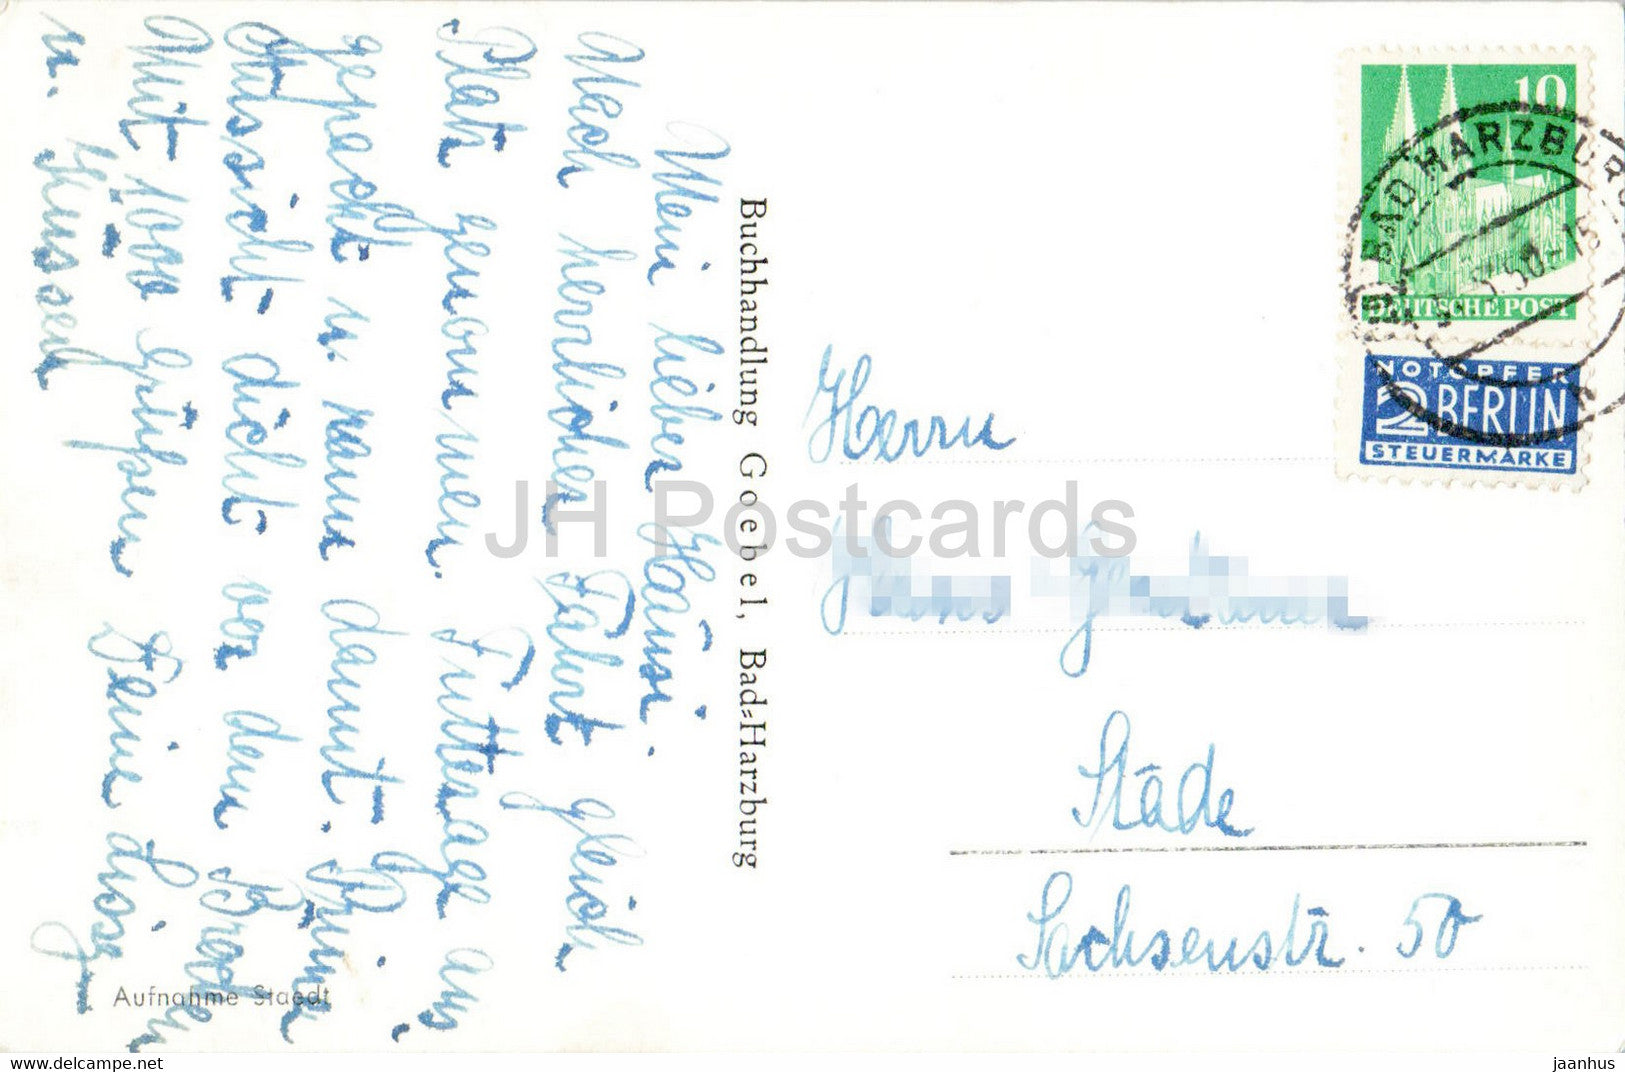 Mein lieber Hansi.
Nach herrlicher Fahrt gleich
Platz genommen. Futterage aus
gepackt u. rann damit. Prima
Aussicht dicht vor dem Brocken
Mit 1000 Grüßen Deine
u. Küssen
Buchhandlung Goebel, Bad=Harzburg
Aufnahme Staedt
10
DEUTSCHE POST
BAD HARZBURG
NOTOPFER
2 BERLIN
STEUERMARKE
Herrn
Stade
Sachsenstr. 50
JH Postcards
www.delcampe.net
jaanhus